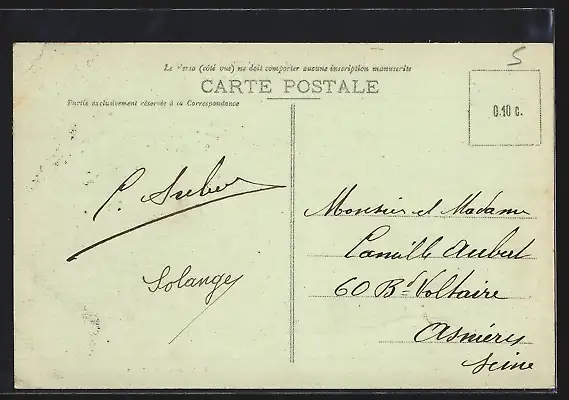 5
Le Verso (côté vue) ne doit comporter aucune inscription manuscrite
CARTE POSTALE
Partie exclusivement réservée à la Correspondance
0.10 c.
Solange
Monsieur et Madame
Camille Aubert
60 Bd Voltaire
Asnières
Seine